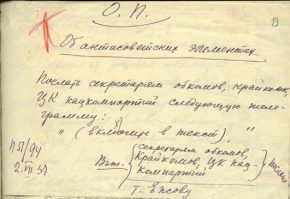 О.П.
19
Об антисоветских элементах
Послать секретарям обкомов, крайкомов,
ЦК нацкомпартий следующую теле-
грамму:
" (включить в текст). "
П51/94
2.VII.37
Вып. секретарям обкомов,
Крайкомов, ЦК нац-
компартий
т. Ежову